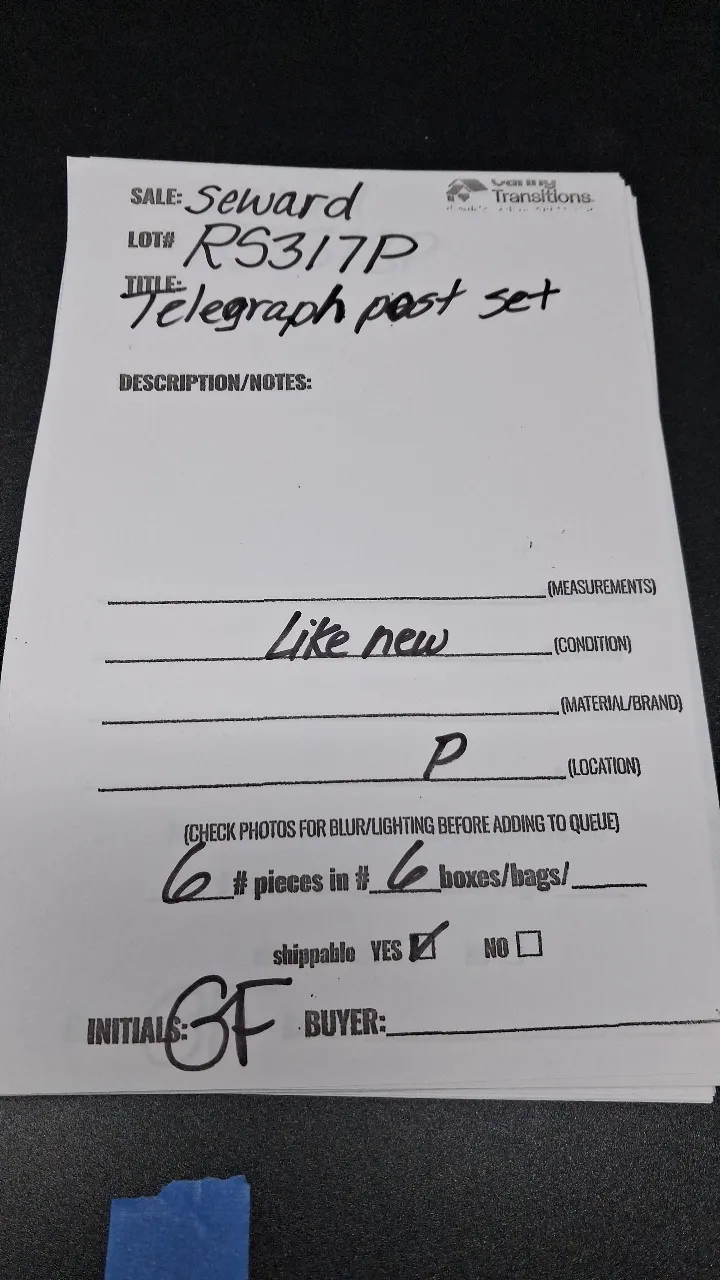 SALE: Seward
Transitions
LOT# RS317P
TITLE:
Telegraph post set
DESCRIPTION/NOTES:
(MEASUREMENTS)
Like new (CONDITION)
(MATERIAL/BRAND)
P (LOCATION)
(CHECK PHOTOS FOR BLUR/LIGHTING BEFORE ADDING TO QUEUE)
6 # pieces in # 6 boxes/bags/
shippable YES NO
INITIALS: GF BUYER: